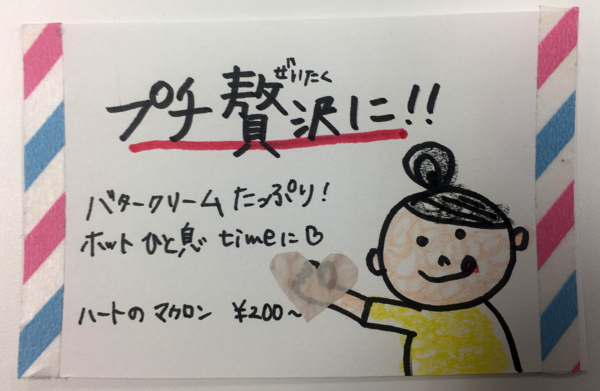 ぜいたく
プチ贅沢に!!
バタークリームたっぷり!
ホットひと息 timeに♡
ハートのマカロン ¥200〜